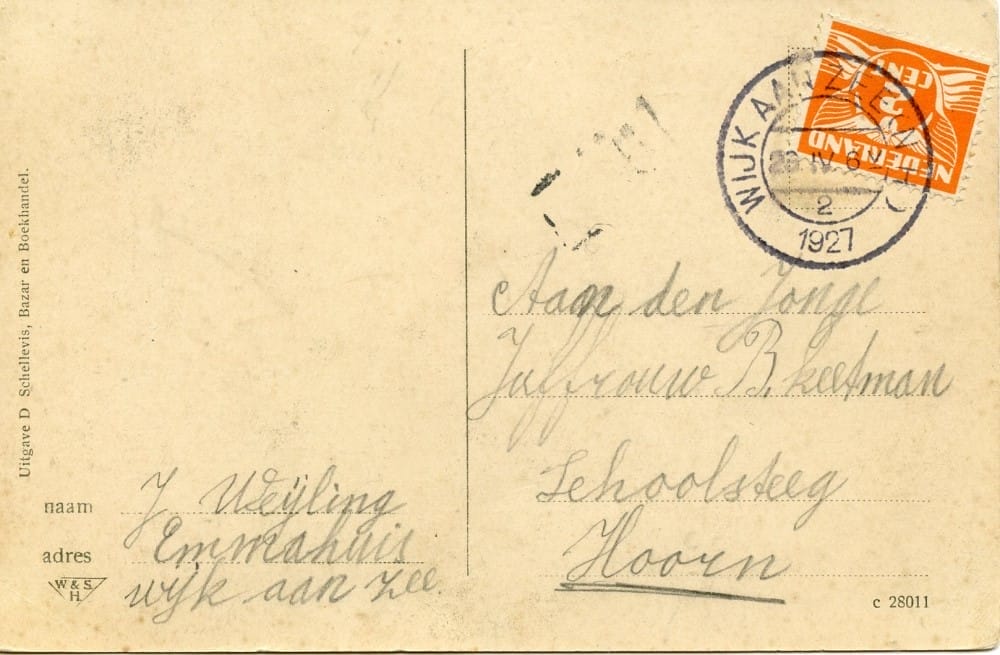 Uitgave D Schellevis, Bazar en Boekhandel.
NEDERLAND
3
CENT
WIJK AAN ZEE
IV. 6
2
1927
Aan den Jonge
Juffrouw B. Keetman
Schoolsteeg
Hoorn
naam J Weijling
adres Emmahuis
wijk aan zee.
W & S
H.
c 28011